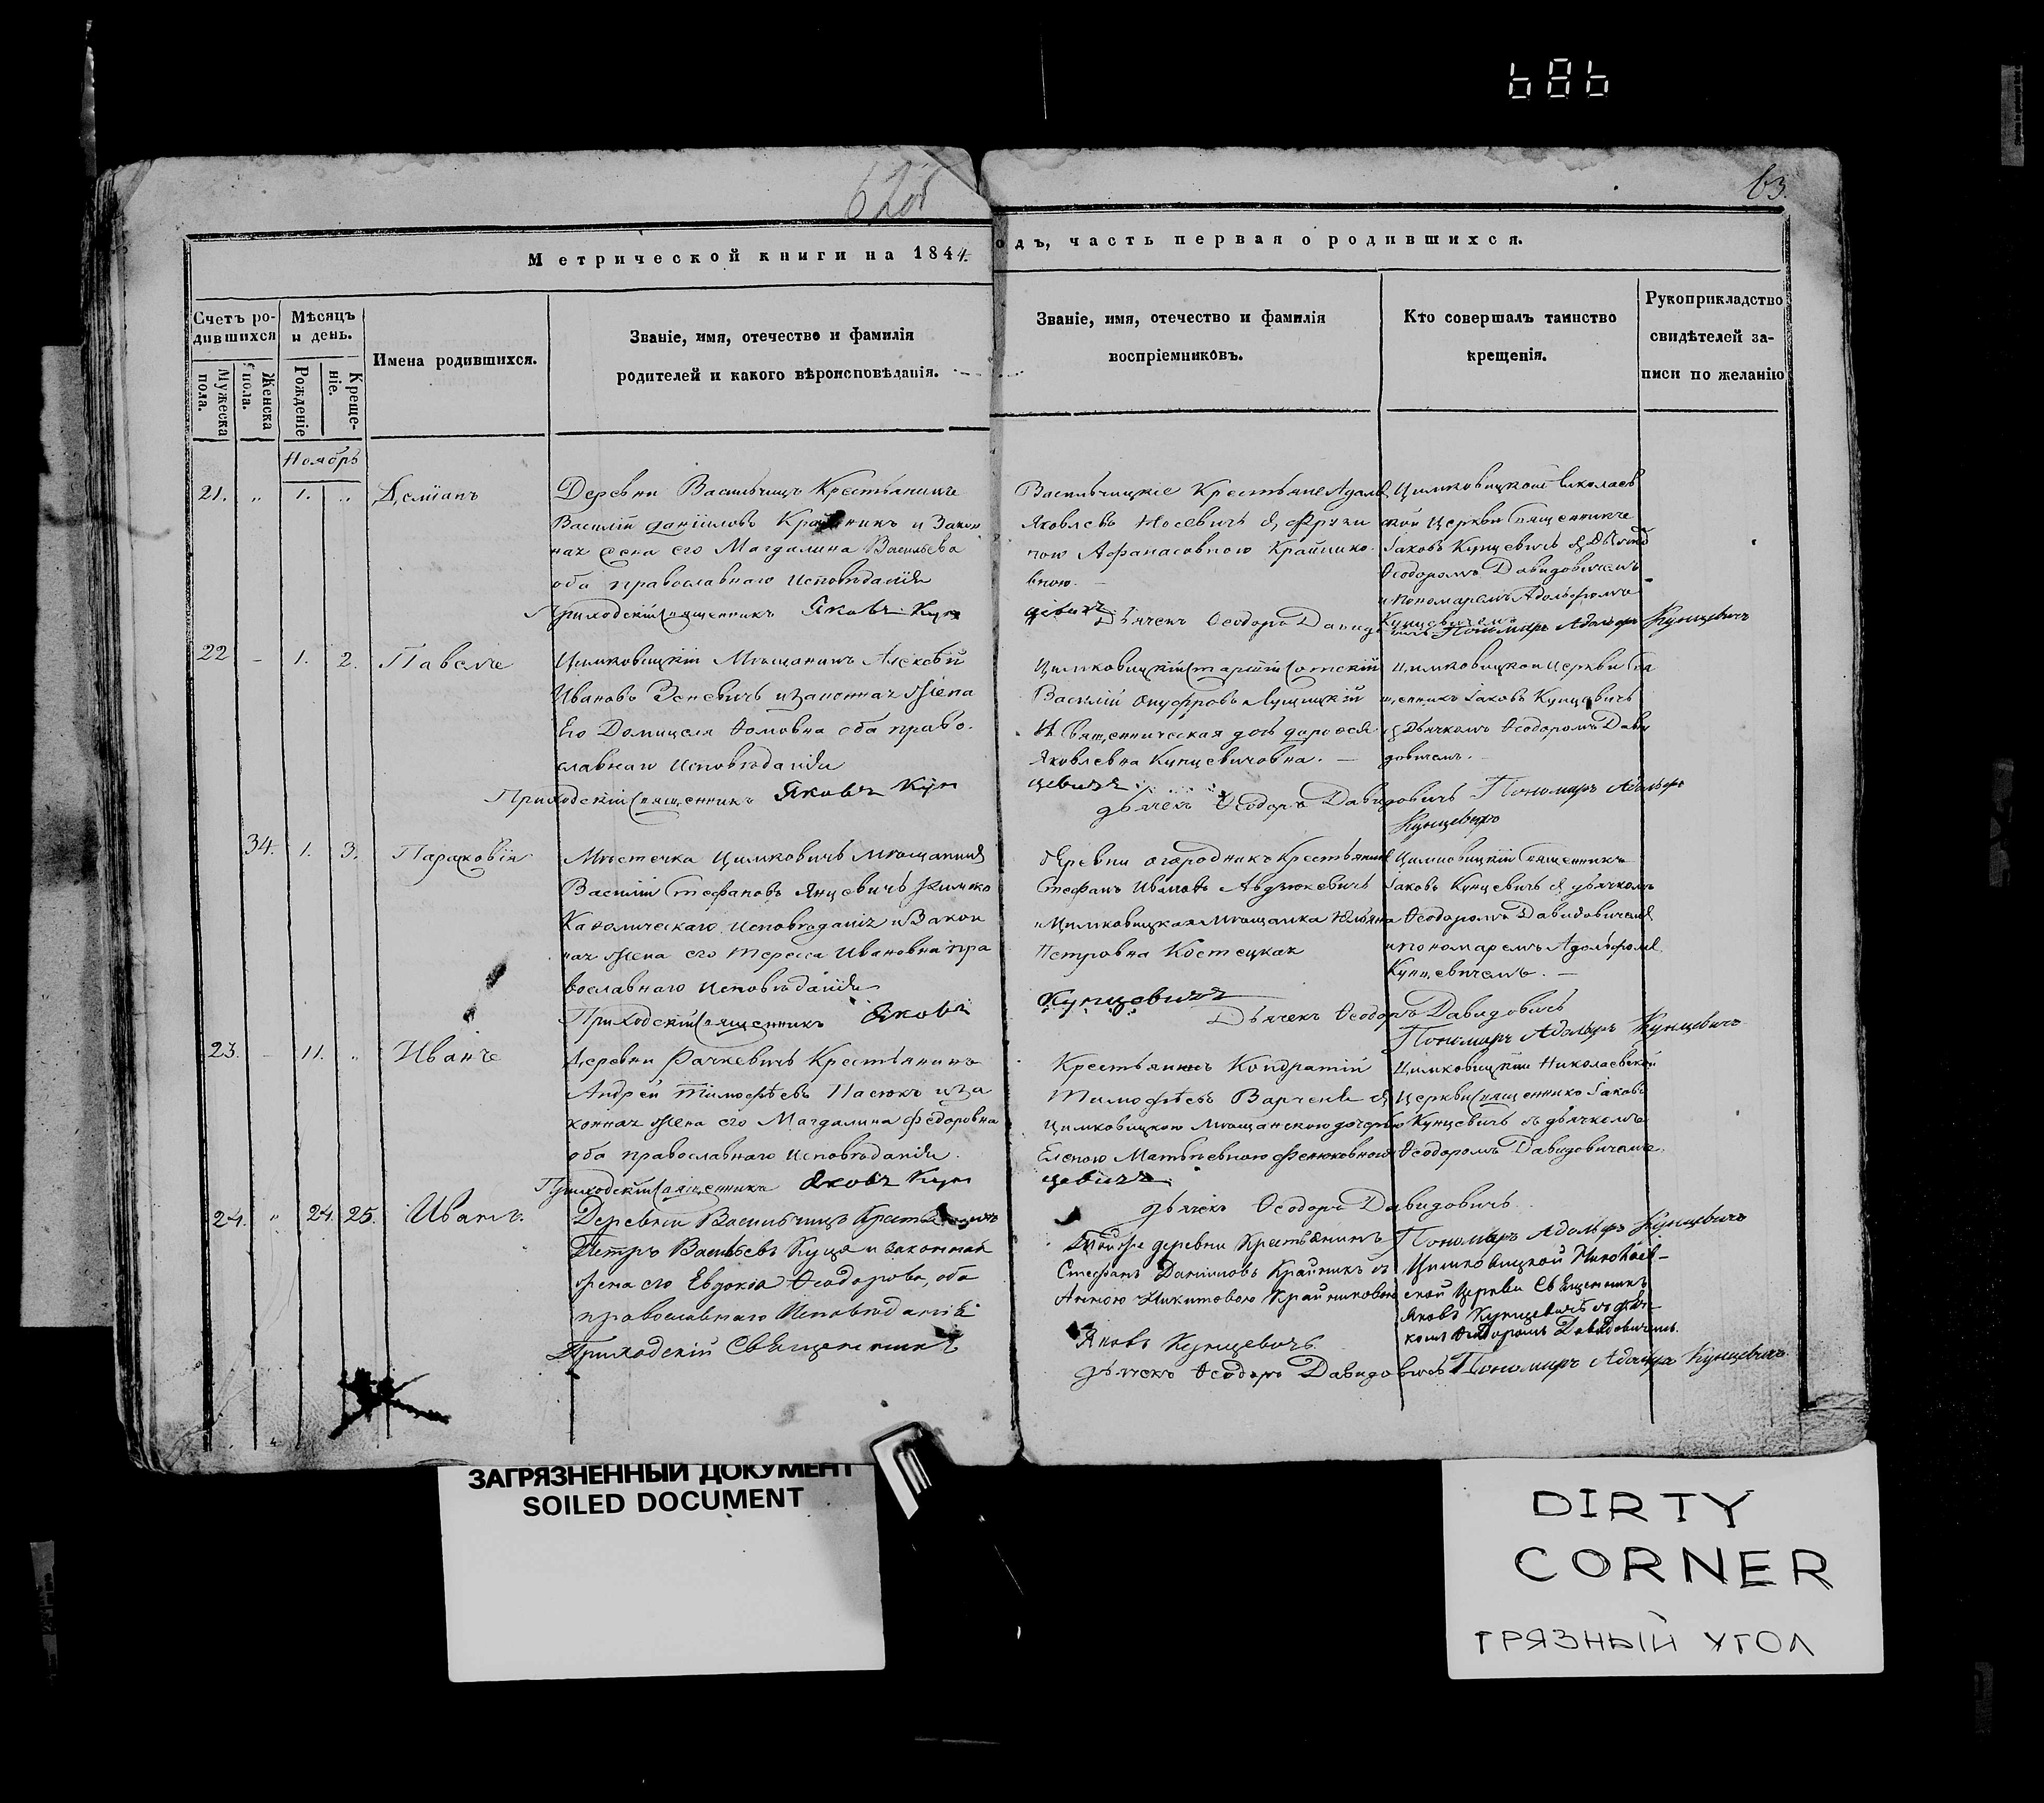 686
62об
63.
Метрической книги на 1844.
одъ, часть первая о родившихся.
Счетъ ро-
дившихся
Мѣсяцъ
и день.
Имена родившихся.
Званіе, имя, отечество и фамилія
родителей и какого вѣроисповѣданія.
Званіе, имя, отечество и фамилія
воспріемниковъ.
Кто совершалъ таинство
крещенія.
Рукоприкладство
свидѣтелей за-
писи по желанію
Мужеска
пола.
Женска
пола.
Рожденіе
Креще-
ніе.
Ноябрь
21. „ 1. „ Деміанъ
Деревни Васильчицъ Крестьянинъ
Василій Даніиловъ Крайникъ и Закон
ная его Магдалина Васильева
оба православнаго исповѣданія
Приходскій Священникъ Яковъ Кун
Васильчицкіе Крестьяне Адамъ
Яковлевъ Носевичъ съ Фрузи
ною Афанасовною Крайнико
вною.
цевичъ
Дьячекъ Ѳеодоръ Давидовичъ
Цимковицкой Николаев
ской Церкви Священникъ
Іаковъ Кунцевичъ съ Дьячко
Ѳеодоромъ Давидовичемъ
и пономаремъ Адольфомъ
Кунцевичемъ
Пономарь Адольфъ Кунцевичъ
22 – 1. 2. Павелъ
Цимковицкій Мѣщанинъ Алексѣй
Ивановъ Зеневичъ и законная Жена
Его Домицеля Ѳомовна оба право-
славнаго исповѣданія
Приходскій Священникъ Яковъ Кун
Цимковицкій старшій Сотскій
Василій Онуфровъ Лущицкій
И Священническая дочь
Яковлевна Кунцевичовна. –
цевичъ
дьячекъ Ѳеодоръ Давидовичъ
Цимковицкой Церкви Свя
щенникъ Іаковъ Кунцевичъ
съ Дьячкомъ Ѳеодоромъ Дави
довичемъ.
Пономарь Адольфъ
Кунцевичъ
34. 1. 3. Параковія
Мѣстечка Цимковичъ Мѣщанинъ
Василій Стефановъ Янцевичъ Римско
Католическаго исповѣданія и Закон
ная Жена его Тереса Ивановна пра
вославнаго исповѣданія
Приходскій Священникъ Яковъ
Деревни Огородникъ Крестьянинъ
Стефанъ Ивановъ Авдзюкевичъ
и Цимковицкая Мѣщанка Юльяна
Петровна Костецкая
Кунцевичъ
Дьячекъ Ѳеодоръ Давидовичъ
Цимковицкій Священникъ
Іаковъ Кунцевичъ съ дьячкомъ
Ѳеодоромъ Давидовичемъ
и пономаремъ Адольфомъ
Кунцевичемъ. –
Пономарь Адольфъ Кунцевичъ
23. – 11. „ Иванъ
Деревни Рачкевичъ Крестьянинъ
Андрей Тимофѣевъ Пасюкъ и за
конная Жена его Магдалина Федоровна
оба православнаго исповѣданія.
Приходскій Священникъ Яковъ Кун
Крестьянинъ Кондратій
Тимофѣевъ Варченя съ
Цимковицкою Мѣщанскою дочерью
Еленою Матвѣевною Фенюковною
цевичъ
дьячекъ Ѳеодоръ Давидовичъ
Цимковицкой Николаевской
Церкви Священникъ Іаковъ
Кунцевичъ съ дьячкомъ
Ѳеодоромъ Давидовичемъ
Пономарь Адольфъ Кунцевичъ
24. „ 24. 25. Иванъ.
Деревни Васильчицъ Крестьянинъ
Петръ Васильевъ Куця и законная
жена его Евдокія Ѳеодорова, оба
православнаго Исповѣданія
Приходскій Священникъ
Тойже деревни Крестьянинъ
Стефанъ Даниловъ Крайникъ съ
Анною Никитовою Крайниковою
Яковъ Кунцевичъ
дьячекъ Ѳеодоръ Давидовичъ
Цимковицкой Николаев-
ской Церкви Священникъ
Яковъ Кунцевичъ съ дьяч-
комъ Ѳеодоромъ Давидовичемъ.
Пономарь Адольфъ Кунцевичъ
ЗАГРЯЗНЕННЫЙ ДОКУМЕНТ
SOILED DOCUMENT
DIRTY
CORNER
ГРЯЗНЫЙ УГОЛ